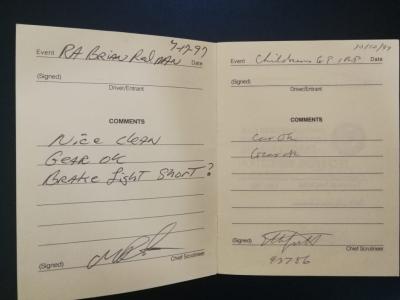 7-12-97
Event RA BRIAN Redman Date
(Signed)
Driver/Entrant
COMMENTS
Nice clean
Gear ok
Brake light short?
(Signed) Chief Scrutineer
Event Childrens GP Date
(Signed)
Driver/Entrant
COMMENTS
Car Ok
Gear ok
(Signed) Chief Scrutineer